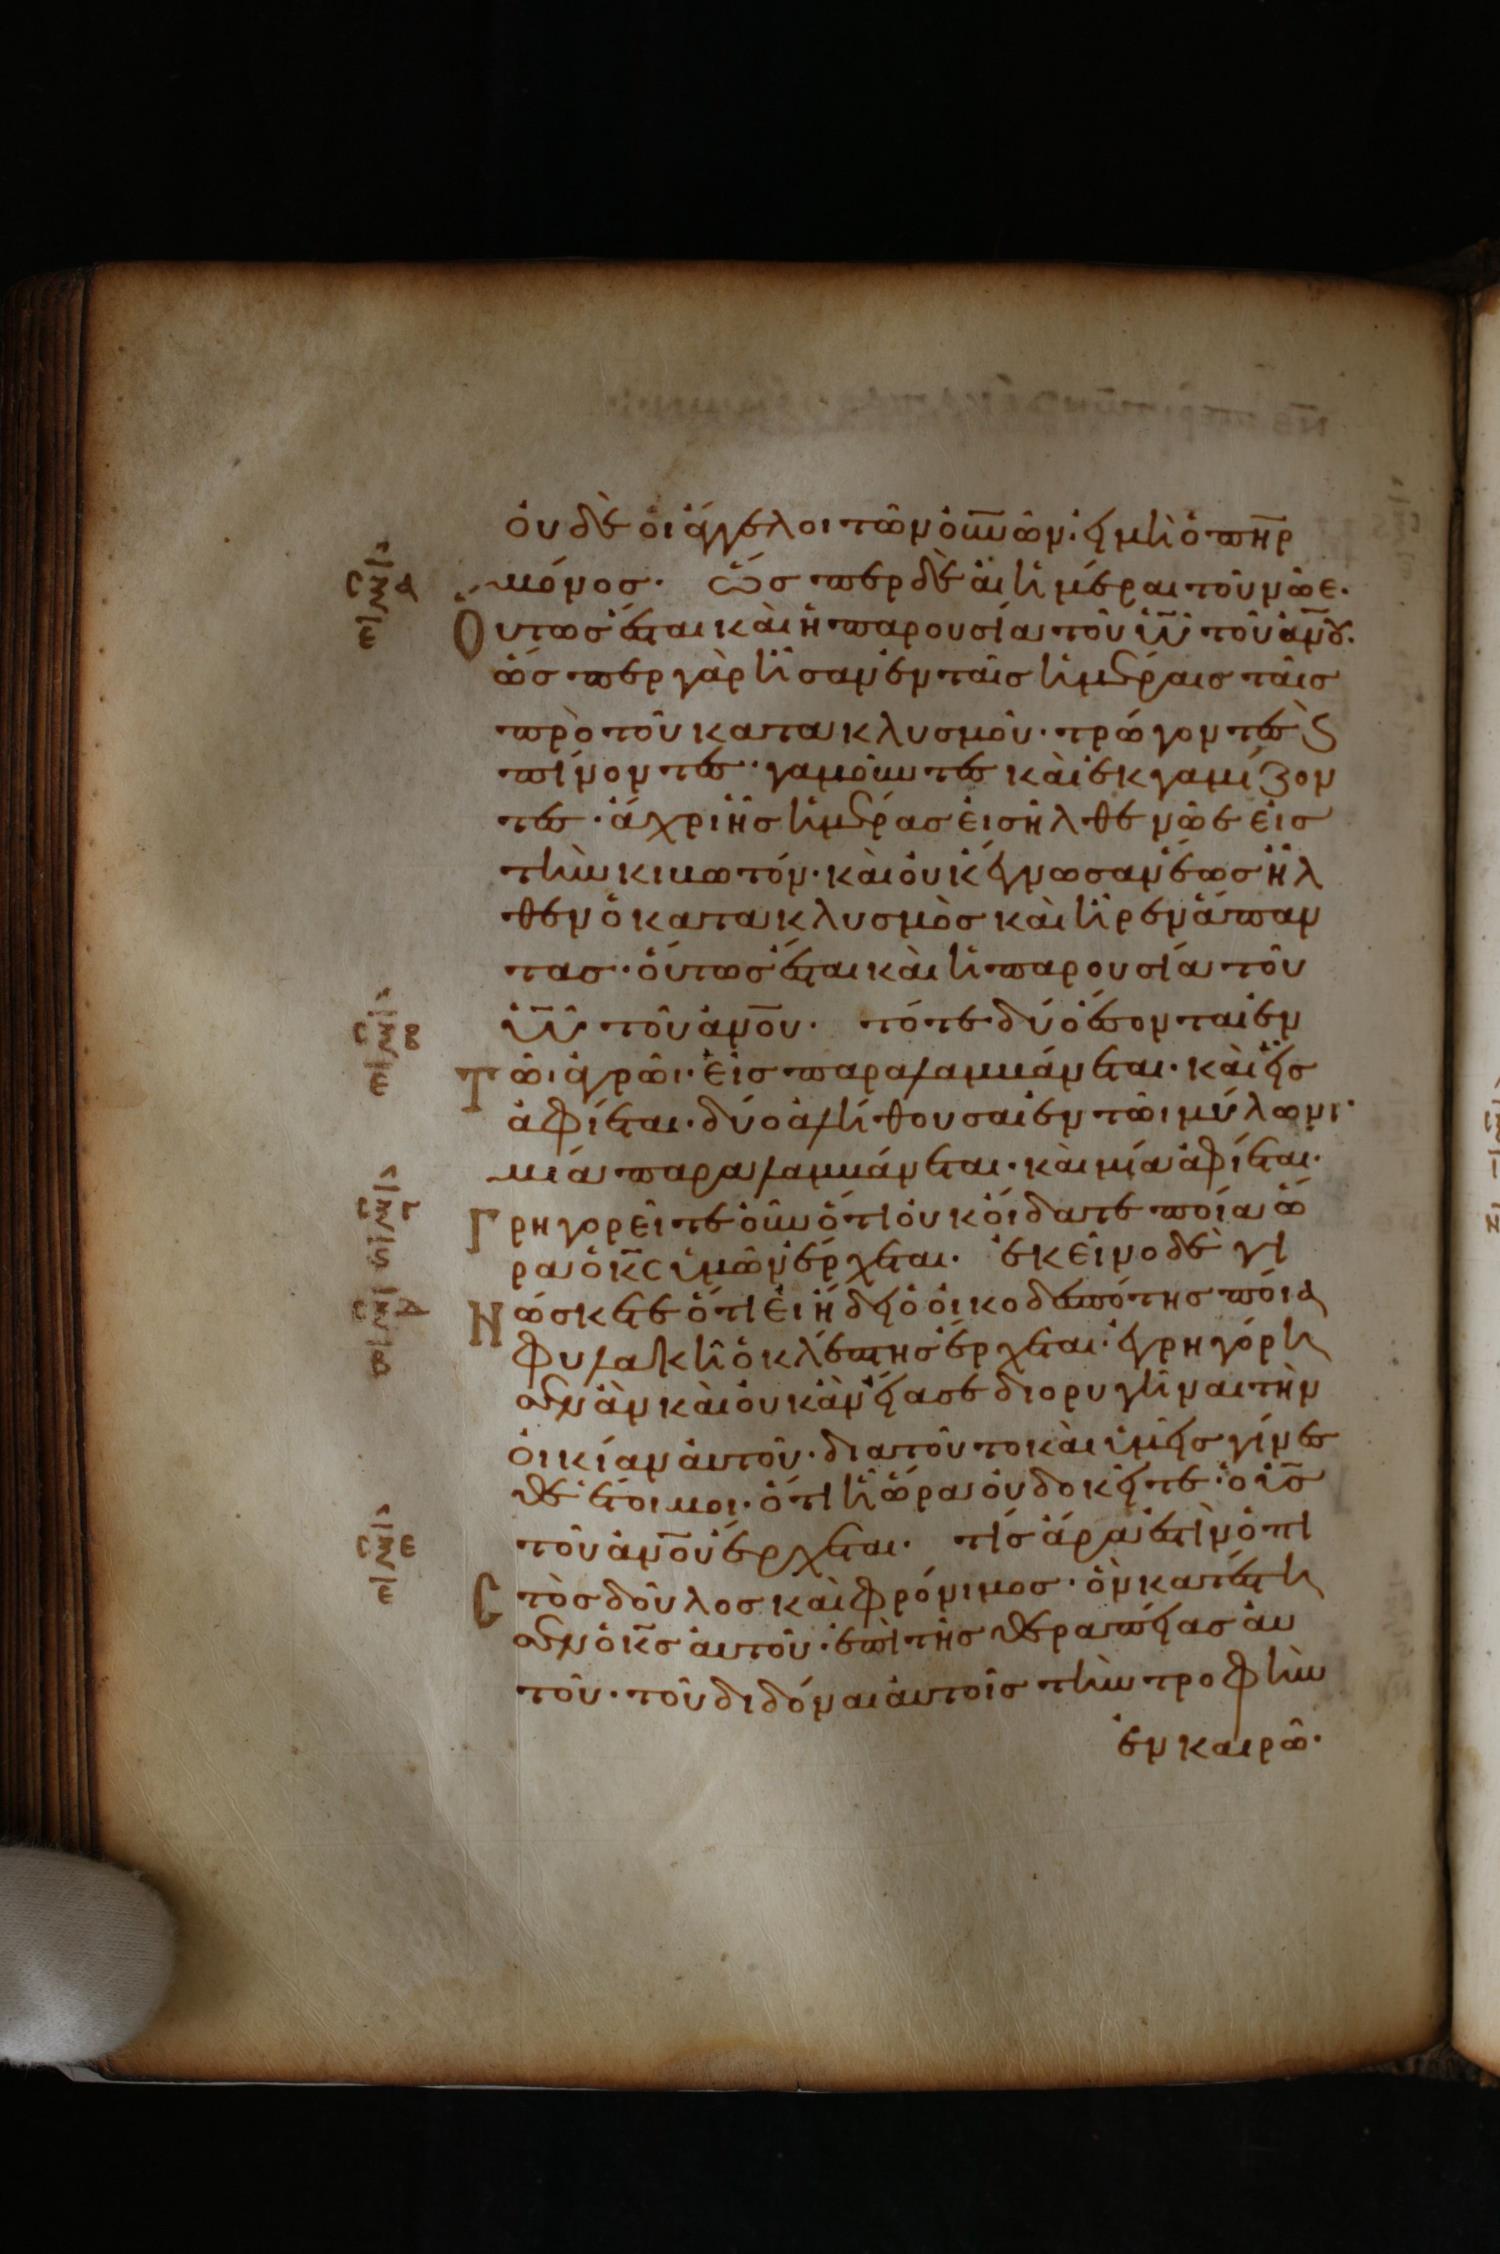 οὐδὲ οἱ ἄγγελοι τῶν οὐνῶν· εἰ μὴ ὁ πηρ
μόνος· ὥσπερ δὲ αἱ ἡμέραι τοῦ νῶε·
Οὕτως ἔσται καὶ ἡ παρουσία τοῦ υυ τοῦ ανου·
ὥσπερ γὰρ ἦσαν ἐν ταῖς ἡμέραις ταῖς
πρὸ τοῦ κατακλυσμοῦ· τρώγοντες ϗ
πίνοντες· γαμοῦντες καὶ ἐκγαμίζον
τες· ἄχρι ἧς ἡμέρας εἰσῆλθε νῶε εἰς
τὴν κιβωτόν· καὶ οὐκ ἔγνωσαν ἕως ἦλ
θεν ὁ κατακλυσμὸς καὶ ἦρεν ἅπαν
τας· οὕτως ἔσται καὶ ἡ παρουσία τοῦ
υυ τοῦ ανου· τότε δύο ἔσονται ἐν
Τῶι ἀγρῶι· εἷς παραλαμβάνεται· καὶ εἷς
ἀφίεται· δύο ἀλήθουσαι ἐν τῶι μύλωνι·
μία παραλαμβάνεται· καὶ μία ἀφίεται·
Γρηγορεῖτε οὖν ὅτι οὐκ οἴδατε ποία ὥ
ρα ὁ κς ὑμῶν ἔρχεται· ἐκεῖνο δὲ γι
Νώσκετε ὅτι εἰ ἤδει ὁ οἰκοδεσπότης ποία
φυλακῆ ὁ κλέπτης ἔρχεται· ἐγρηγόρη
σεν ἂν καὶ οὐκ ἂν εἴασε διορυγῆναι τὴν
οἰκίαν αὐτοῦ· διατοῦτο καὶ ὑμεῖς γίνεσ
θε ἕτοιμοι· ὅτι ἧ ὥρα οὐ δοκεῖτε· ὁ υς
τοῦ ανου ἔρχεται· τίς ἄρα ἐστὶν ὁ πι
Στὸς δοῦλος καὶ φρόνιμος· ὃν κατέστη
σεν ὁ κς αὐτοῦ· ἐπὶ τῆς θεραπείας αὐ
τοῦ· τοῦ διδόναι αὐτοῖς τὴν τροφὴν
ἐν καιρῶ·